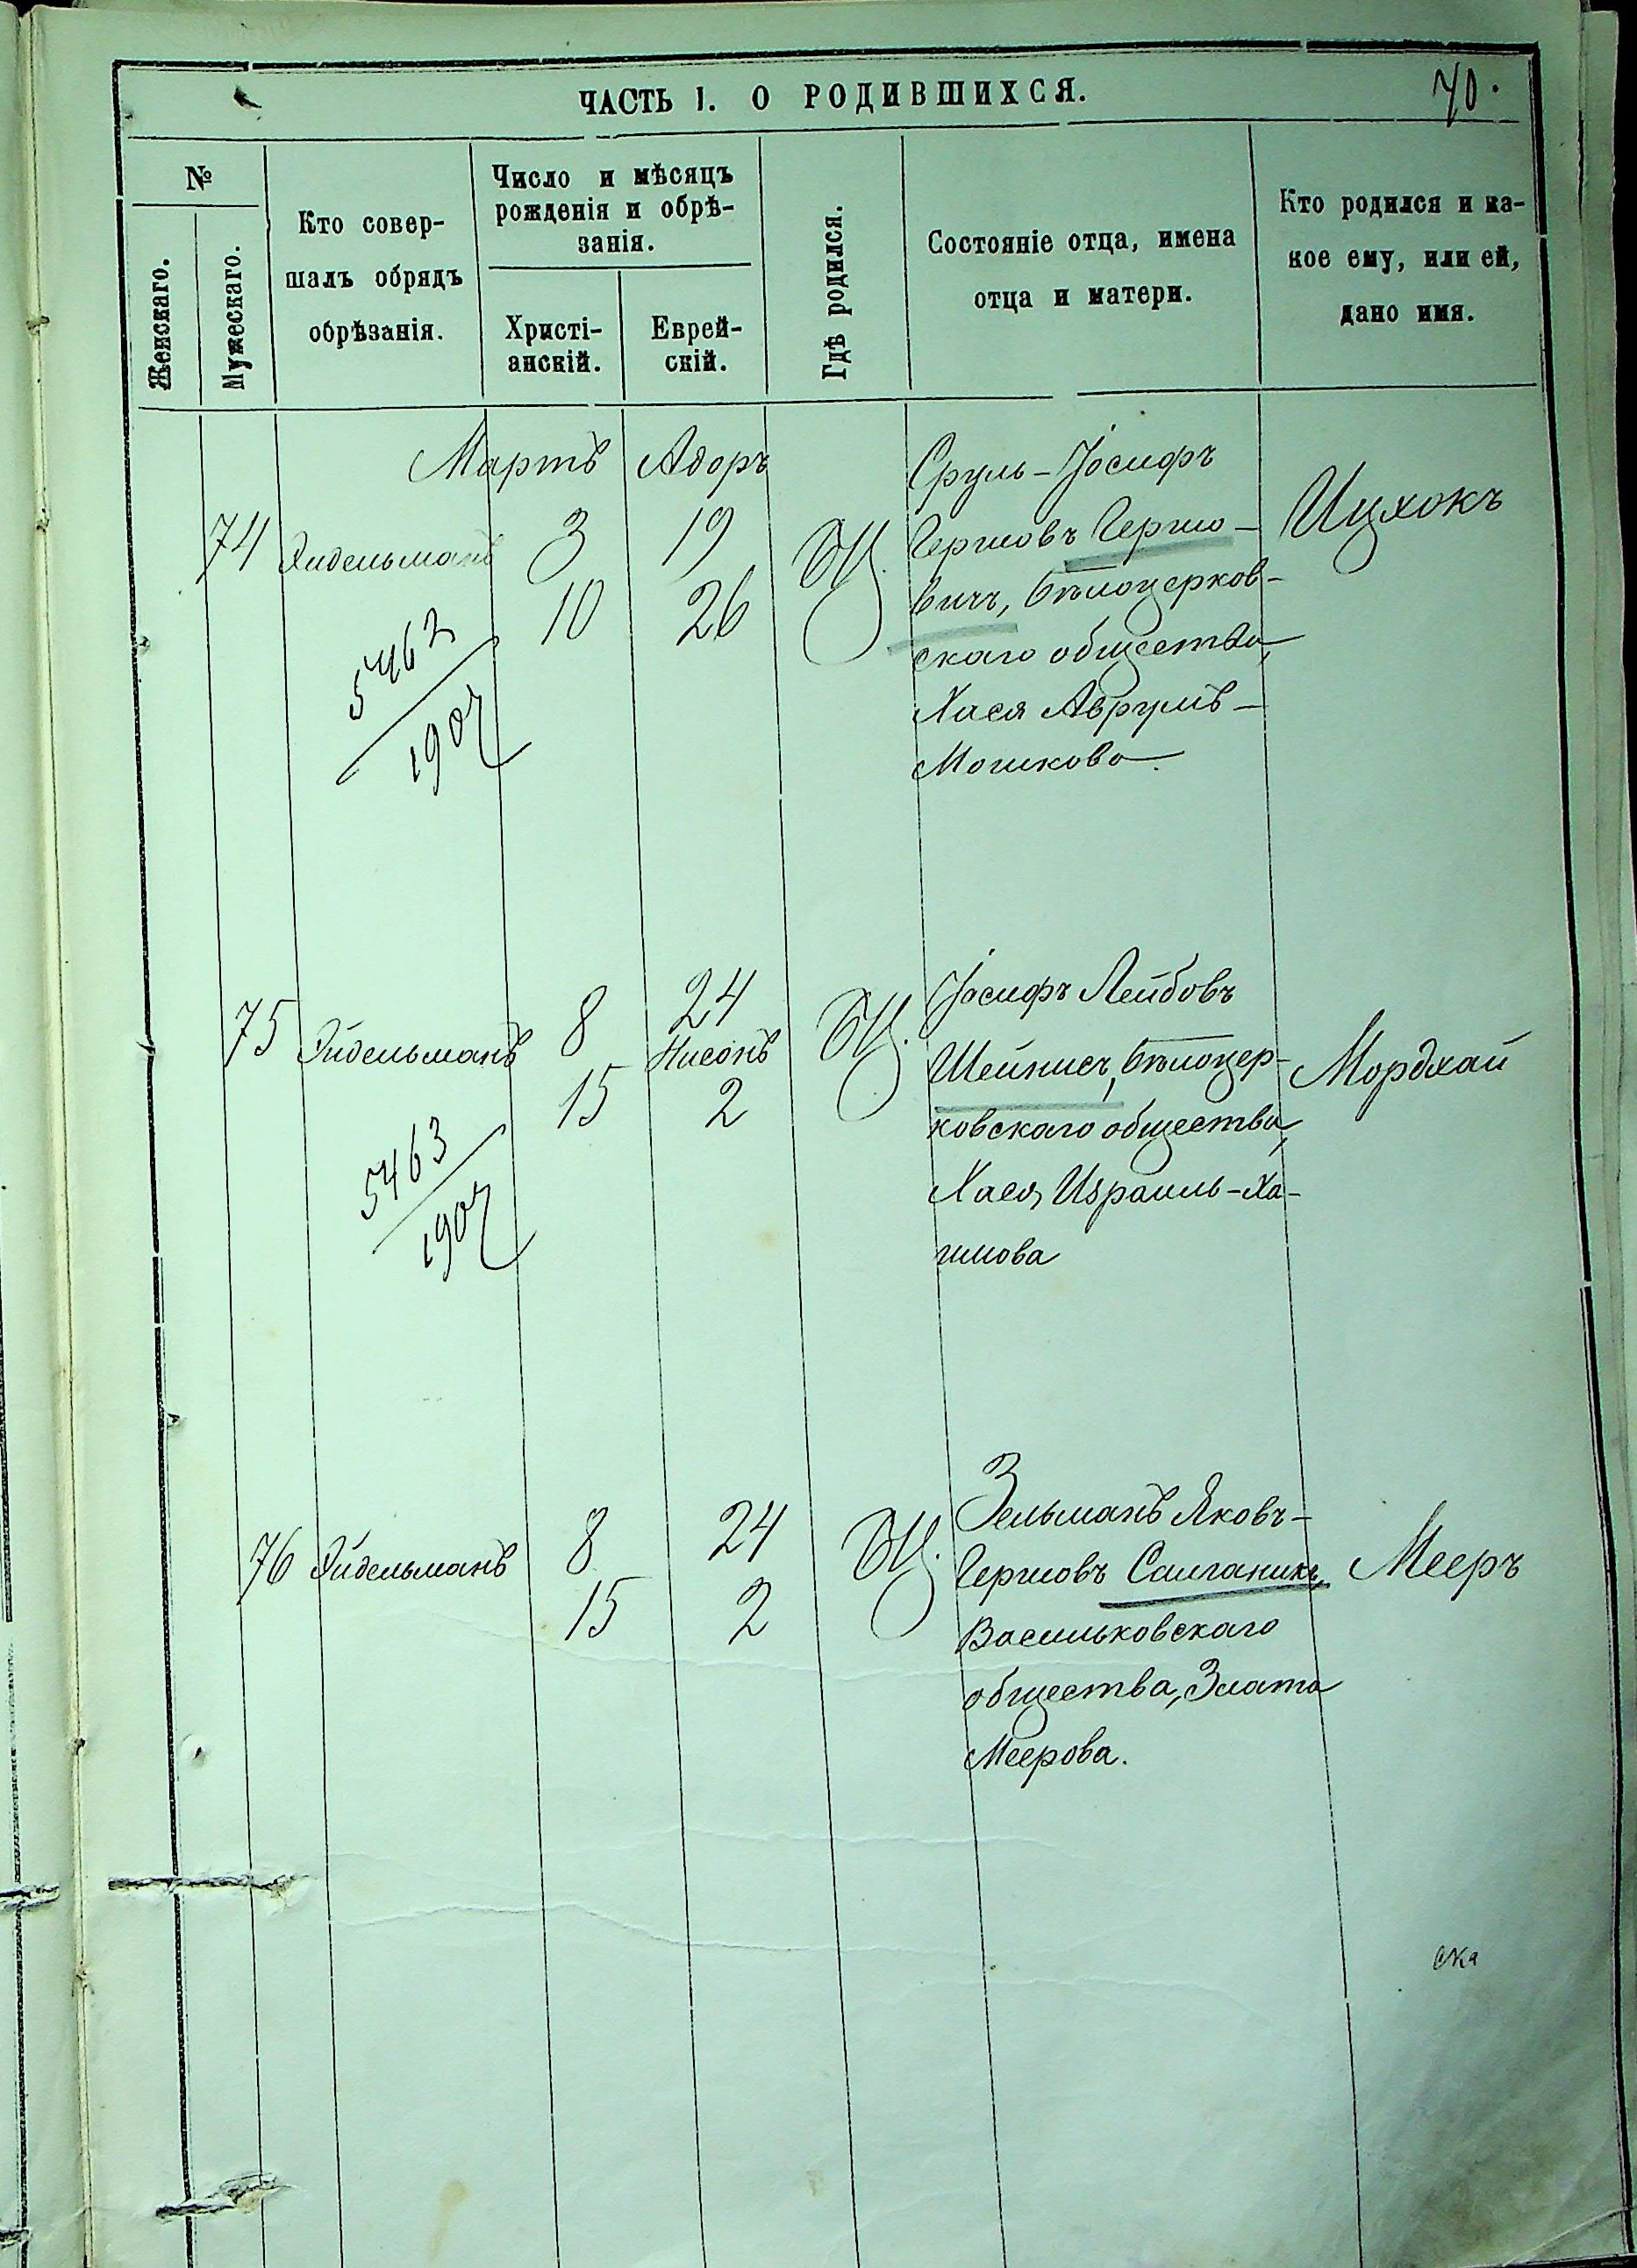 ЧАСТЬ I. О РОДИВШИХСЯ.
70.
№
Женскаго.
Мужескаго.
Кто совер-
шалъ обрядъ
обрѣзанія.
Число и мѣсяцъ
рожденія и обрѣ-
занія.
Христі-
анскій.
Еврей-
скій.
Гдѣ родился.
Состояніе отца, имена
отца и матери.
Кто родился и ка-
кое ему, или ей,
дано имя.
Мартъ
Адоръ
74
Эйдельманъ
3
10
19
26
БЦ.
Сруль-Іосифъ
Гершовъ Гершо-
вичъ, бѣлоцерков-
скаго общества,
Хася Аврумъ-
Мошкова.
Ицхокъ
5462
1907
75
Эйдельманъ
8
15
24
Нисонъ
2
БЦ.
Іосифъ Лейбовъ
Шейнисъ, бѣлоцер-
ковскаго общества,
Хася Израиль-Ха-
имова
Мордхай
5463
1907
76
Эйдельманъ
8
15
24
2
БЦ.
Зельманъ Яковъ-
Гершовъ Салганикъ,
Васильковскаго
общества, Злата
Меерова.
Мееръ